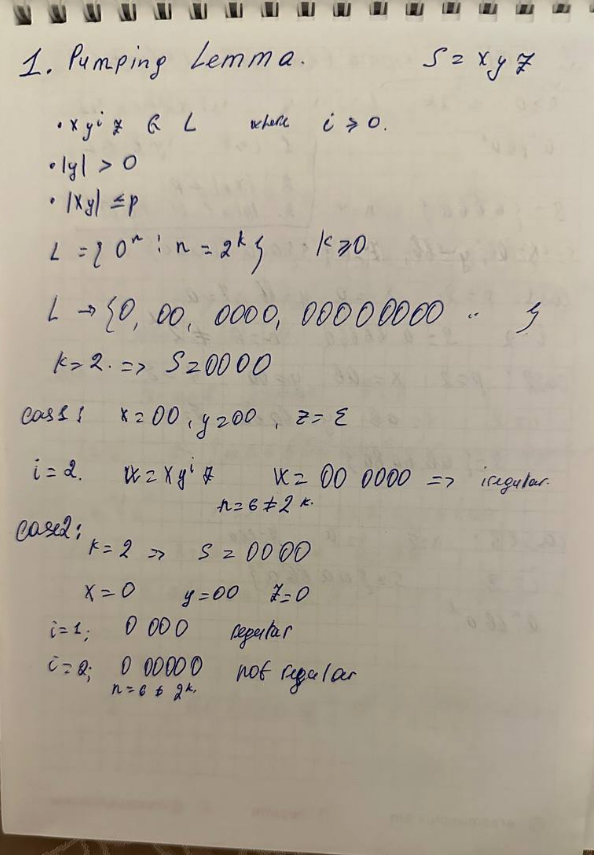 1. Pumping Lemma. S = x y z
• x y^i z ∈ L where i ≥ 0.
• |y| > 0
• |xy| ≤ p
L = { 0^n : n = 2^k } k ≥ 0
L → {0, 00, 0000, 00000000 .. }
k = 2. => S = 0000
cas1: x = 00, y = 00, z = ε
i = 2. w = x y^i z w = 00 0000 => iregular.
n = 6 ≠ 2^k.
case2:
k = 2 => S = 0000
x = 0 y = 00 z = 0
i = 1; 0 000 regular
i = 2; 0 00000 not regular
n = 6 ≠ 2^k.